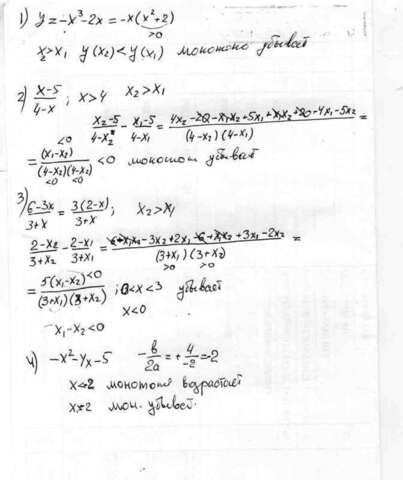 1) y = -x³-2x = -x(x²+2)
>0
x₂>x₁ y(x₂)<y(x₁) монотоно убывает
2) x-5/4-x ; x>4 x₂>x₁
x₂-5/4-x₂ - x₁-5/4-x₁ = 4x₂-20-x₁x₂+5x₁+x₁x₂+20-4x₁-5x₂/(4-x₂)(4-x₁) =
<0
= (x₁-x₂)/(4-x₂)(4-x₂) <0 монотон убывает
<0 <0
3)
6-3x/3+x = 3(2-x)/3+x ; x₂>x₁
2-x₂/3+x₂ - 2-x₁/3+x₁ = 6+x₁x₂-3x₂+2x₁-6+x₁x₂+3x₁-2x₂/(3+x₁)(3+x₂) =
>0 >0
= 5(x₁-x₂)<0/(3+x₁)(3+x₂) ; 0<x<3 убывает
x<0
x₁-x₂<0
4) -x²-4x-5 -b/2a = +4/-2 = -2
x<-2 монотоно возрастает
мон. убывает.